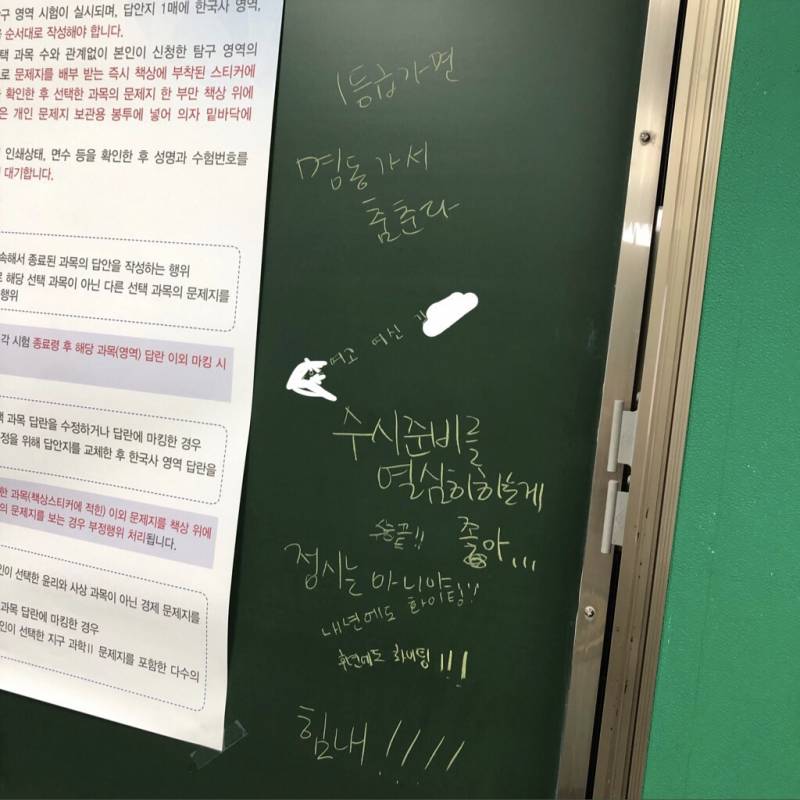 구 영역 시험이 실시되며, 답안지 1매에 한국사 영역,
순서대로 작성해야 합니다.
택 과목 수와 관계없이 본인이 신청한 탐구 영역의
로 문제지를 배부 받는 즉시 책상에 부착된 스티커에
확인한 후 선택한 과목의 문제지 한 부만 책상 위에
은 개인 문제지 보관용 봉투에 넣어 의자 밑바닥에
인쇄상태, 면수 등을 확인한 후 성명과 수험번호를
대기합니다.
속해서 종료된 과목의 답안을 작성하는 행위
로 해당 선택 과목이 아닌 다른 선택 과목의 문제지를
행위
각 시험 종료령 후 해당 과목(영역) 답란 이외 마킹 시
택 과목 답란을 수정하거나 답란에 마킹한 경우
정을 위해 답안지를 교체한 후 한국사 영역 답란을
한 과목(책상스티커에 적힌) 이외 문제지를 책상 위에
의 문제지를 보는 경우 부정행위 처리됩니다.
인이 선택한 윤리와 사상 과목이 아닌 경제 문제지를
과목 답란에 마킹한 경우
인이 선택한 지구 과학Ⅱ 문제지를 포함한 다수의
1등급가면
명동가서
춤춘다
여고 여신
수시준비를
열심히하는게
수능끝!! 좋아...
정시는 아니야
내년에도 화이팅!!
후년에도 화이팅!!!
힘내!!!!